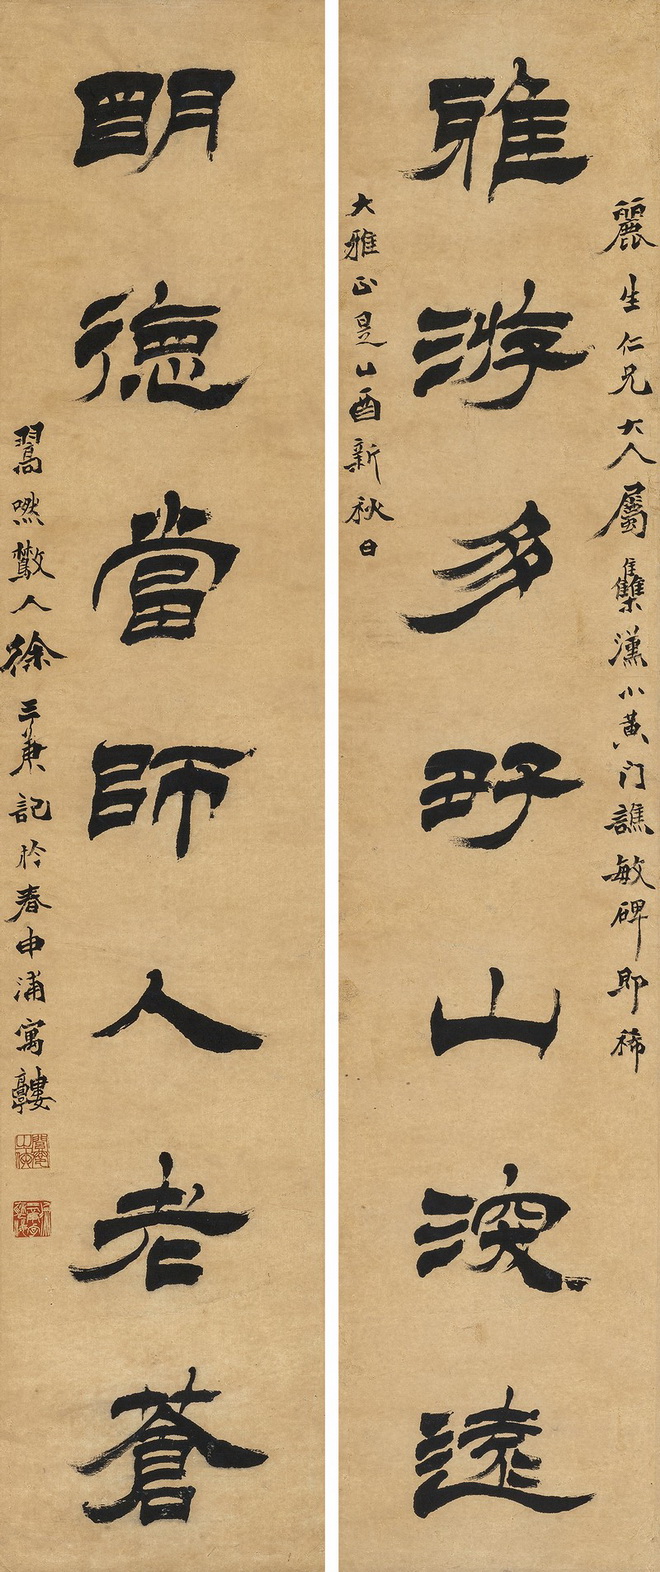 麗生仁兄大人屬集漢小黃門譙敏碑即稀
雅游多好山深遠
大雅正是酉新秋日
明德當師人老蒼
翯嘫人徐三庚記於春申浦寓